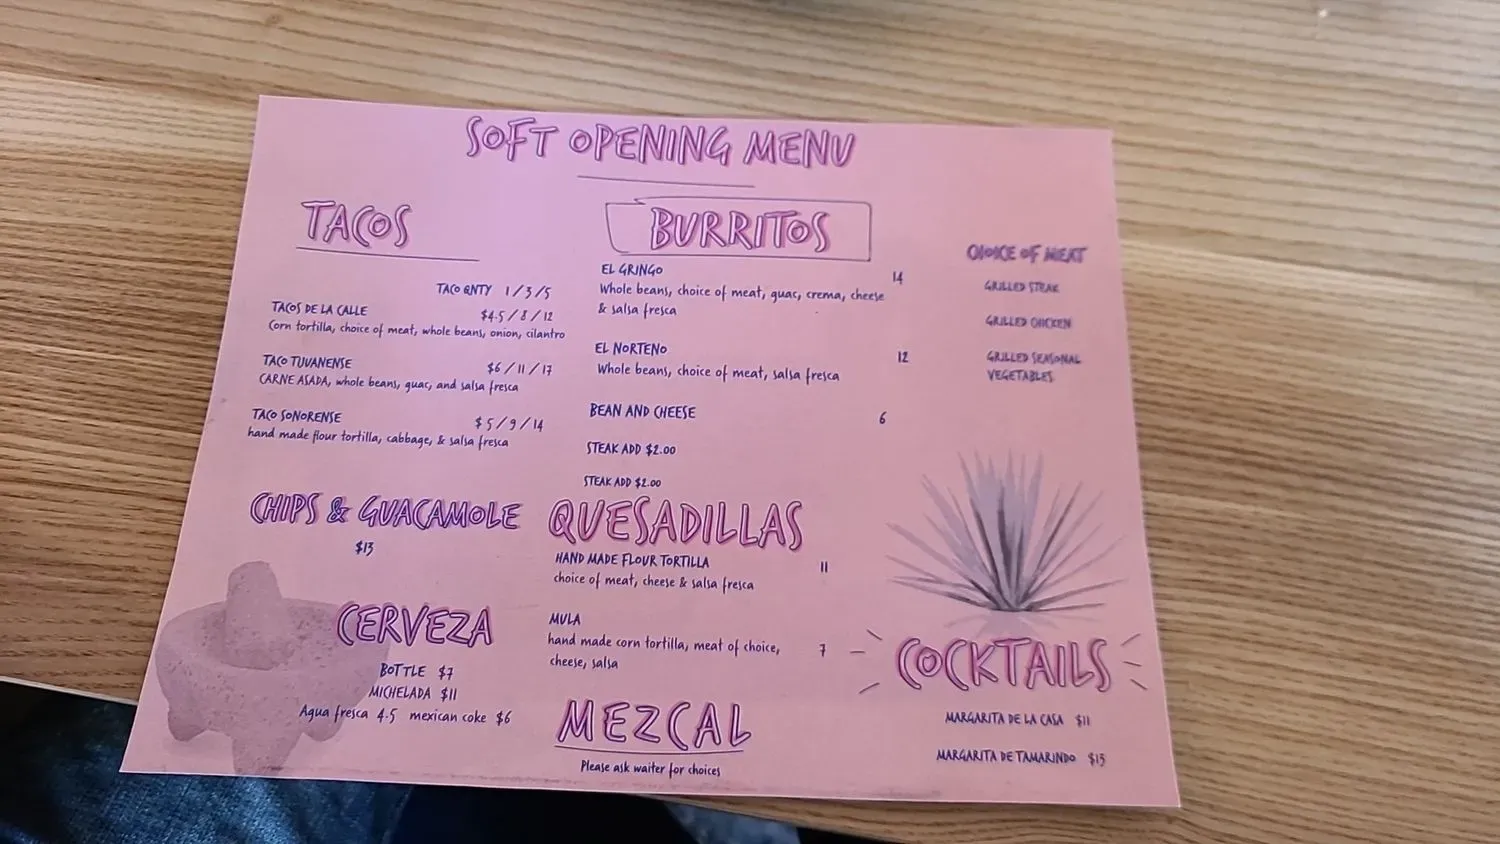 SOFT OPENING MENU
TACOS
TACO QNTY 1/3/5
TACOS DE LA CALLE $4.5/8/12
Corn tortilla, choice of meat, whole beans, onion, cilantro
TACO TIJUANENSE $6/11/17
CARNE ASADA, whole beans, guac, and salsa fresca
TACO SONORENSE $5/9/14
hand made flour tortilla, cabbage, & salsa fresca
CHIPS & GUACAMOLE
$13
CERVEZA
BOTTLE $7
MICHELADA $11
Agua fresca 4.5 mexican coke $6
BURRITOS
EL GRINGO 14
Whole beans, choice of meat, guac, crema, cheese
& salsa fresca
EL NORTENO 12
Whole beans, choice of meat, salsa fresca
BEAN AND CHEESE 6
STEAK ADD $2.00
STEAK ADD $2.00
QUESADILLAS
HAND MADE FLOUR TORTILLA 11
choice of meat, cheese & salsa fresca
MULA
hand made corn tortilla, meat of choice, 7
cheese, salsa
MEZCAL
Please ask waiter for choices
CHOICE OF MEAT
GRILLED STEAK
GRILLED CHICKEN
GRILLED SEASONAL
VEGETABLES
COCKTAILS
MARGARITA DE LA CASA $11
MARGARITA DE TAMARINDO $13